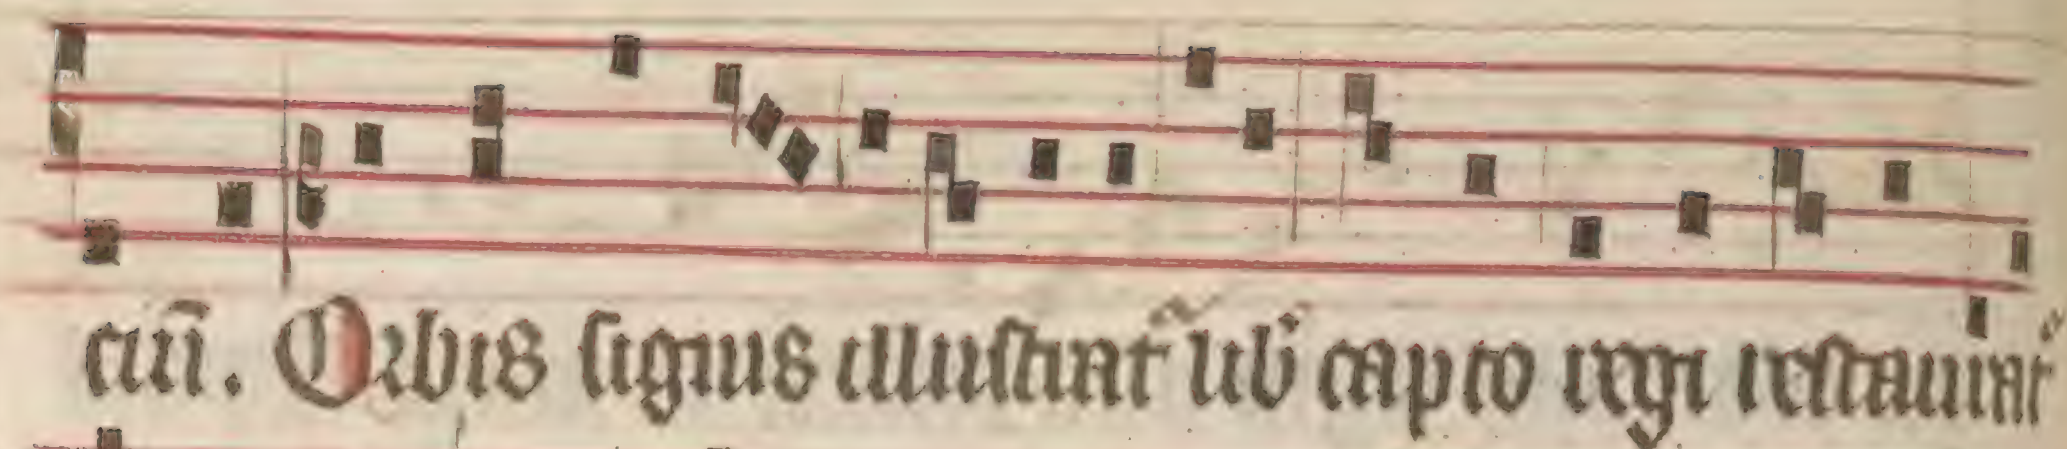 ciũ. Orbis signis illustratᷣ ubi capto regi restauratᷣ